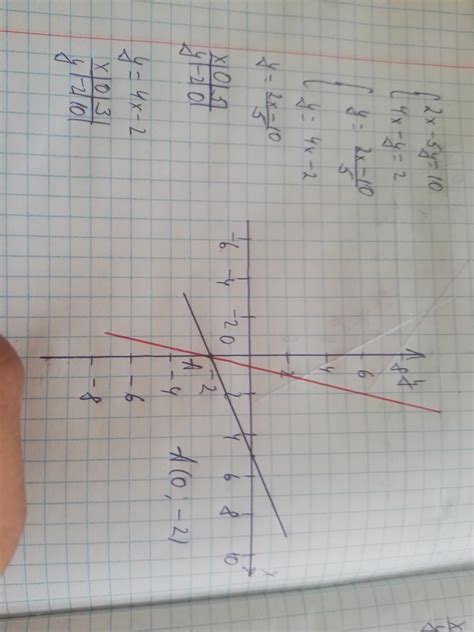 { 2x-5y=10
4x-y=2
{ y = 2x-10/5
y = 4x-2
y = 2x-10/5
x | 0 | 5
y | -2 | 0
y = 4x-2
x | 0 | 3
y | -2 | 10
y
8
6
4
2
-6 -4 -2 0 2 4 6 8 10 x
A -2
-4
-6
-8
A(0; -2)